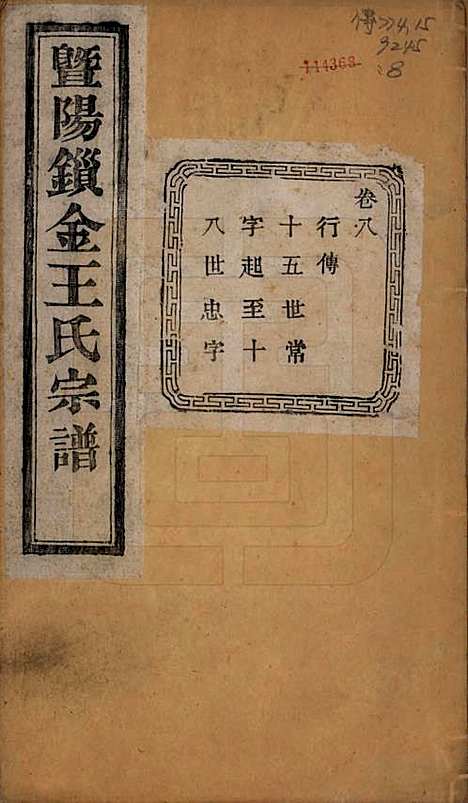 暨陽鎖金王氏宗譜
卷八
行傳
十五世常
字起至十
八世忠字
傳
9245
:8
144363